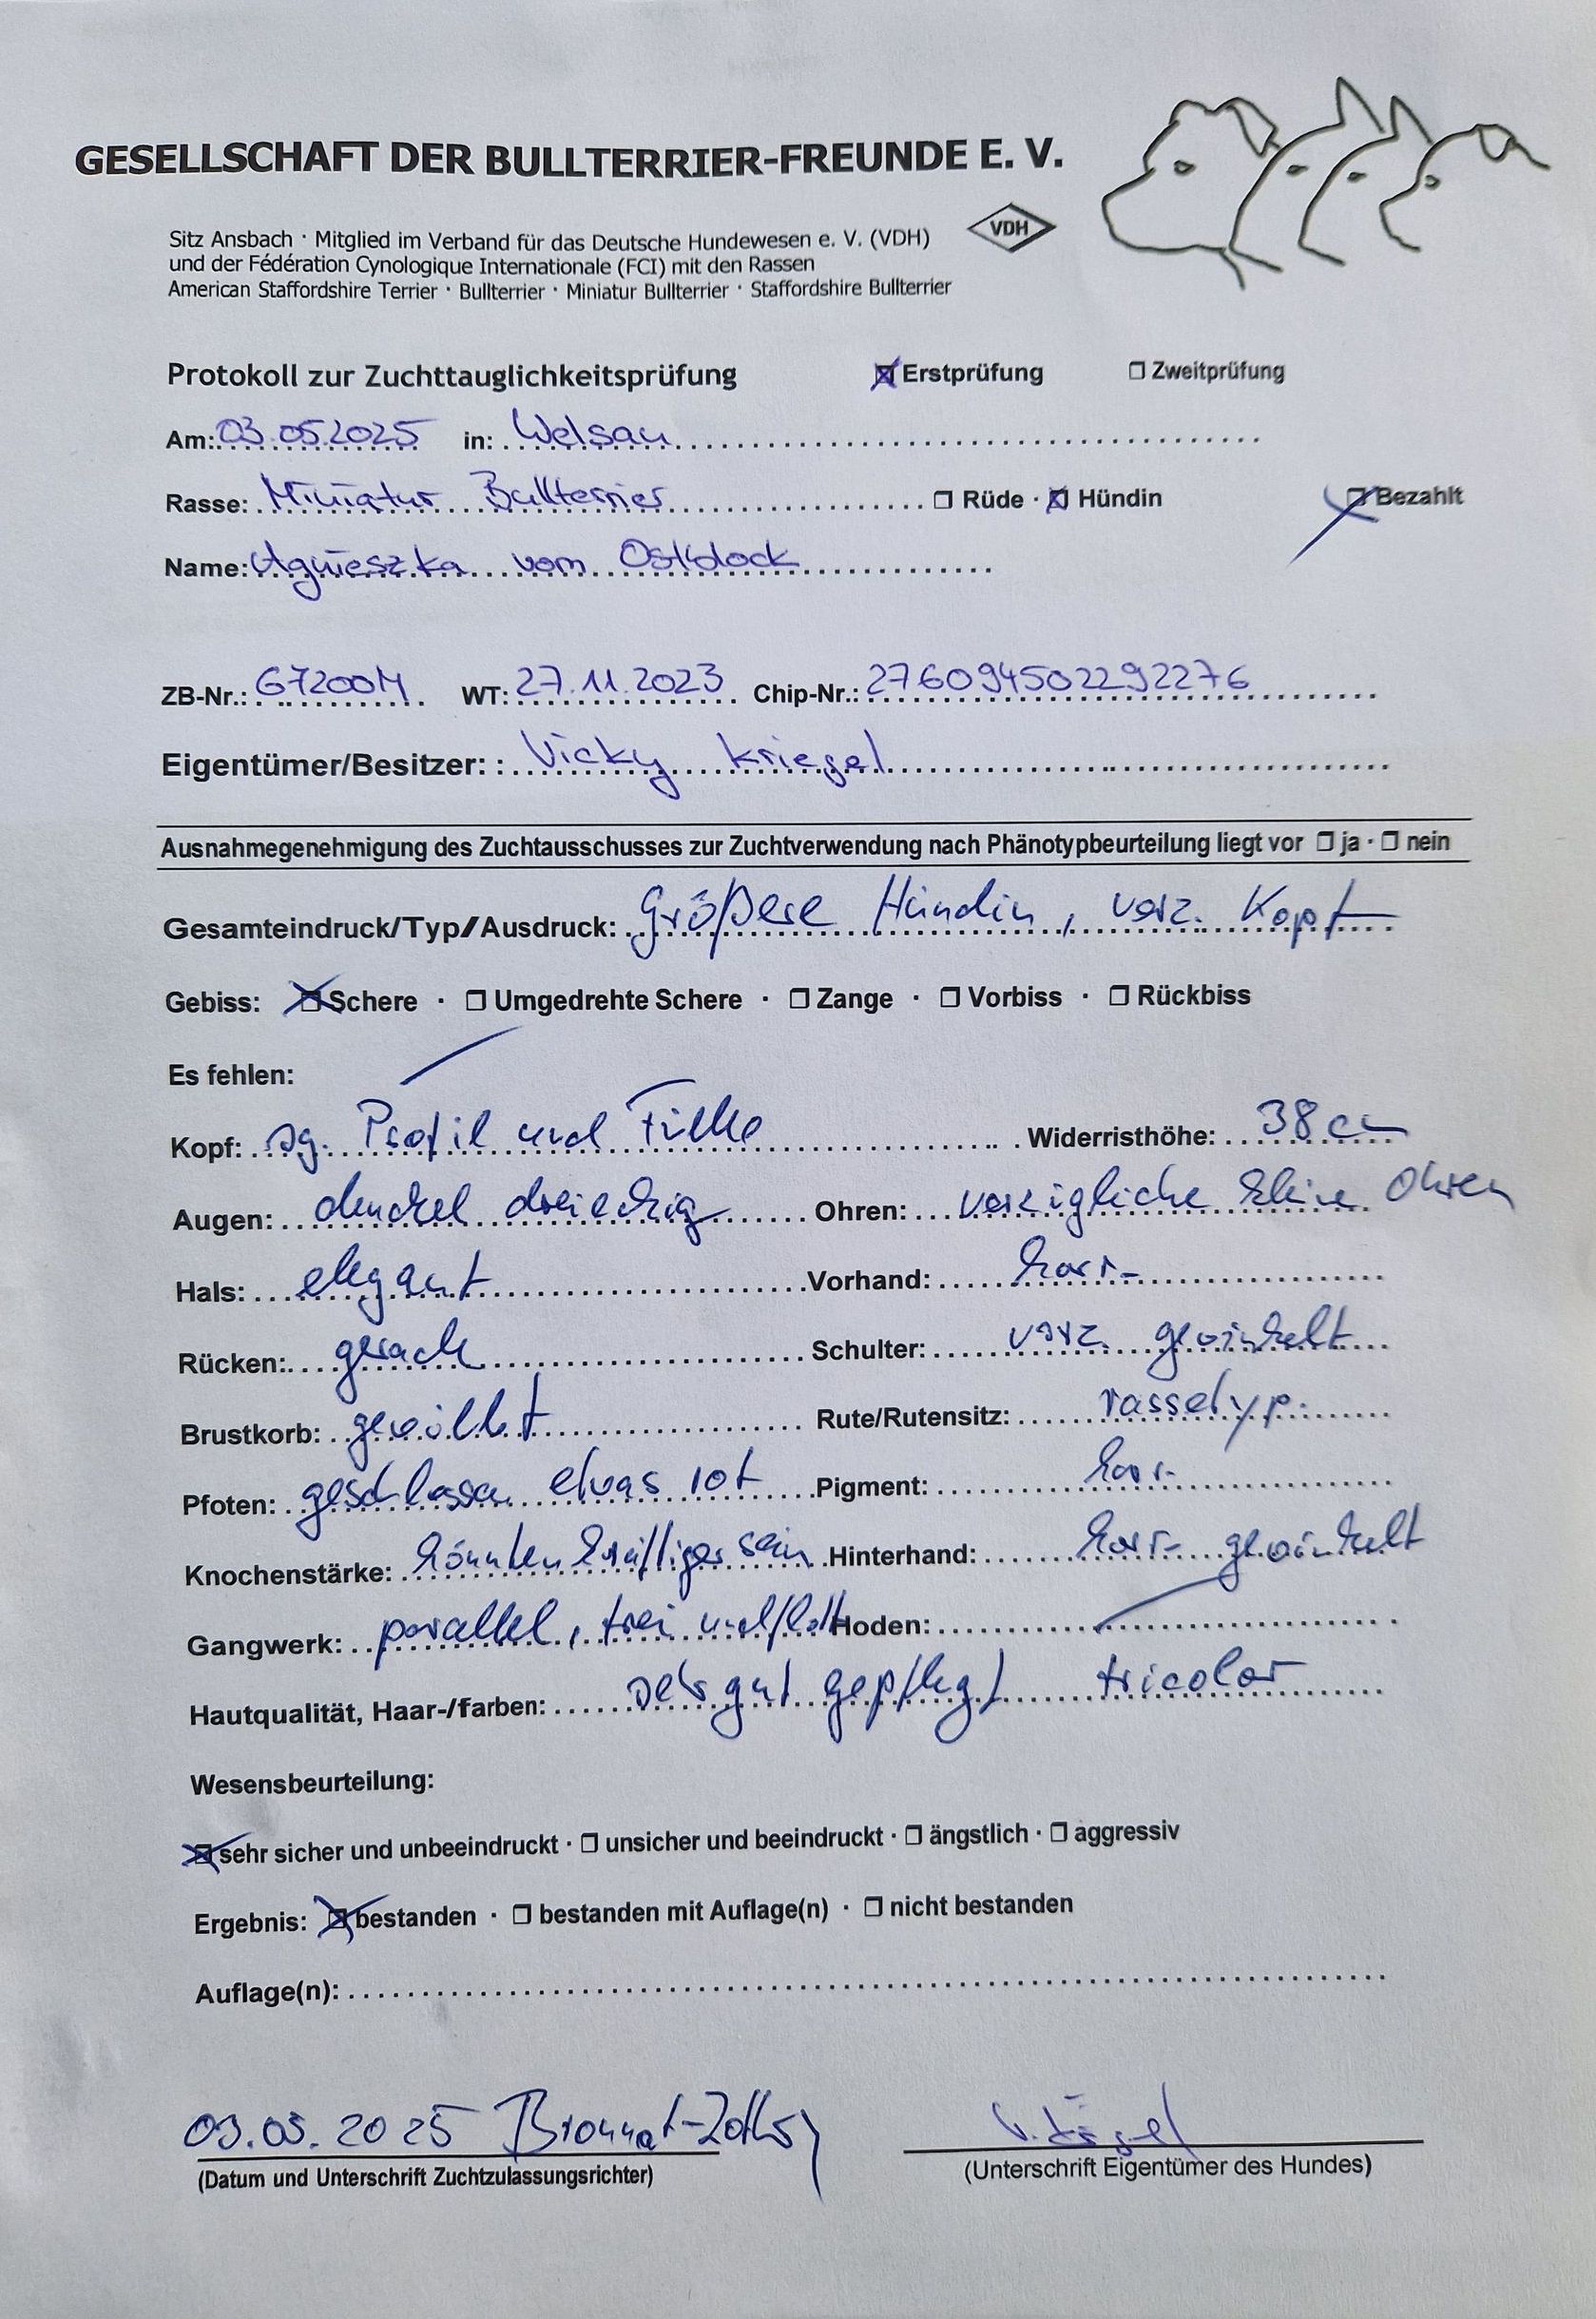 GESELLSCHAFT DER BULLTERRIER-FREUNDE E. V.
Sitz Ansbach · Mitglied im Verband für das Deutsche Hundewesen e. V. (VDH)
VDH
und der Fédération Cynologique Internationale (FCI) mit den Rassen
American Staffordshire Terrier · Bullterrier · Miniatur Bullterrier · Staffordshire Bullterrier
Protokoll zur Zuchttauglichkeitsprüfung ☒ Erstprüfung ☐ Zweitprüfung
Am: 03.05.2025 in: Welsau
Rasse: Miniatur Bullterrier ☐ Rüde · ☒ Hündin ☒ Bezahlt
Name: Agnieszka vom Ostblock
ZB-Nr.: G7200M WT: 27.11.2023 Chip-Nr.: 276094502292276
Eigentümer/Besitzer: : Vicky Kriegel
Ausnahmegenehmigung des Zuchtausschusses zur Zuchtverwendung nach Phänotypbeurteilung liegt vor ☐ ja · ☐ nein
Gesamteindruck/Typ/Ausdruck: Größere Hündin, vorz. Kopf
Gebiss: ☒ Schere · ☐ Umgedrehte Schere · ☐ Zange · ☐ Vorbiss · ☐ Rückbiss
Es fehlen: /
Kopf: sg. Profil und Fülle Widerristhöhe: 38 cm
Augen: dunkel dreieckig Ohren: vorzügliche kleine Ohren
Hals: elegant Vorhand: korr.
Rücken: gerade Schulter: vorz. gewinkelt
Brustkorb: gewölbt Rute/Rutensitz: rassetyp.
Pfoten: geschlossen etwas rot Pigment: korr.
Knochenstärke: könnten kräftiger sein Hinterhand: korr. gewinkelt
Gangwerk: parallel, frei und flott Hoden: /
Hautqualität, Haar-/farben: sehr gut gepflegt tricolor
Wesensbeurteilung:
☒ sehr sicher und unbeeindruckt · ☐ unsicher und beeindruckt · ☐ ängstlich · ☐ aggressiv
Ergebnis: ☒ bestanden · ☐ bestanden mit Auflage(n) · ☐ nicht bestanden
Auflage(n):
03.05.2025
(Datum und Unterschrift Zuchtzulassungsrichter) (Unterschrift Eigentümer des Hundes)